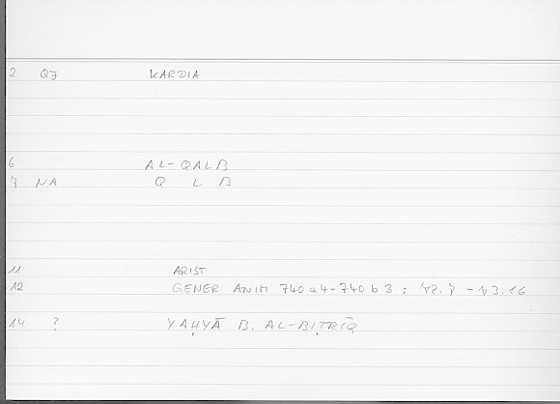 2 Q7 KARDIA
6 AL-QALB
7 NA Q L B
11 ARIST
12 GENER ANIM 740a4-740b3 : 72.7 - 73.16
14 ? YAḤYĀ B. AL-BIṬRĪQ